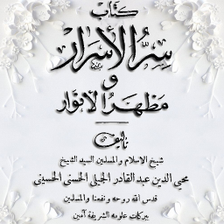 كتاب
سر الأسرار
و
مظهر الأنوار
تأليف
شيخ الاسلام والمسلمين السيد الشيخ
محيي الدين عبد القادر الجيلي الحسني الحسيني
قدس الله روحه ونفعنا والمسلمين
ببركات علومه الشريفة آمين